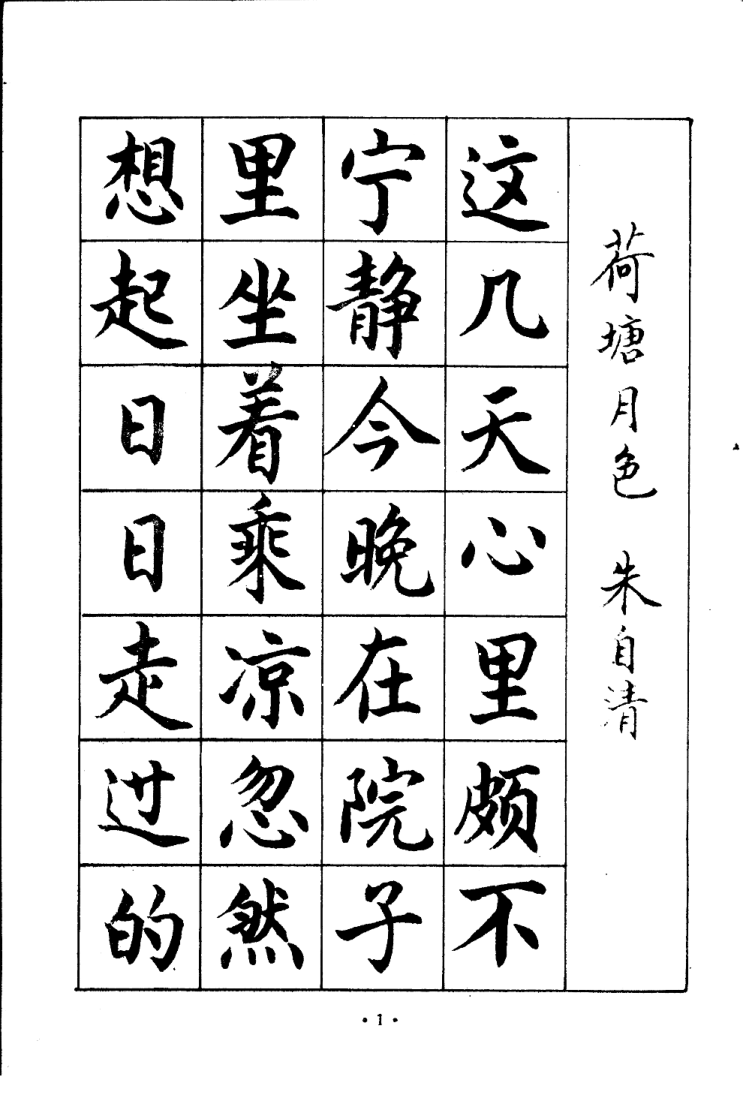 荷塘月色 朱自清
这几天心里颇不
宁静今晚在院子
里坐着乘凉忽然
想起日日走过的
·1·